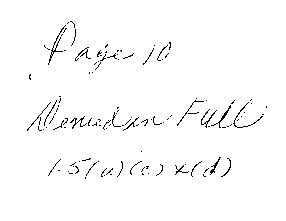 Page 10
Denied in Full
1.5(a)(c) x(d)